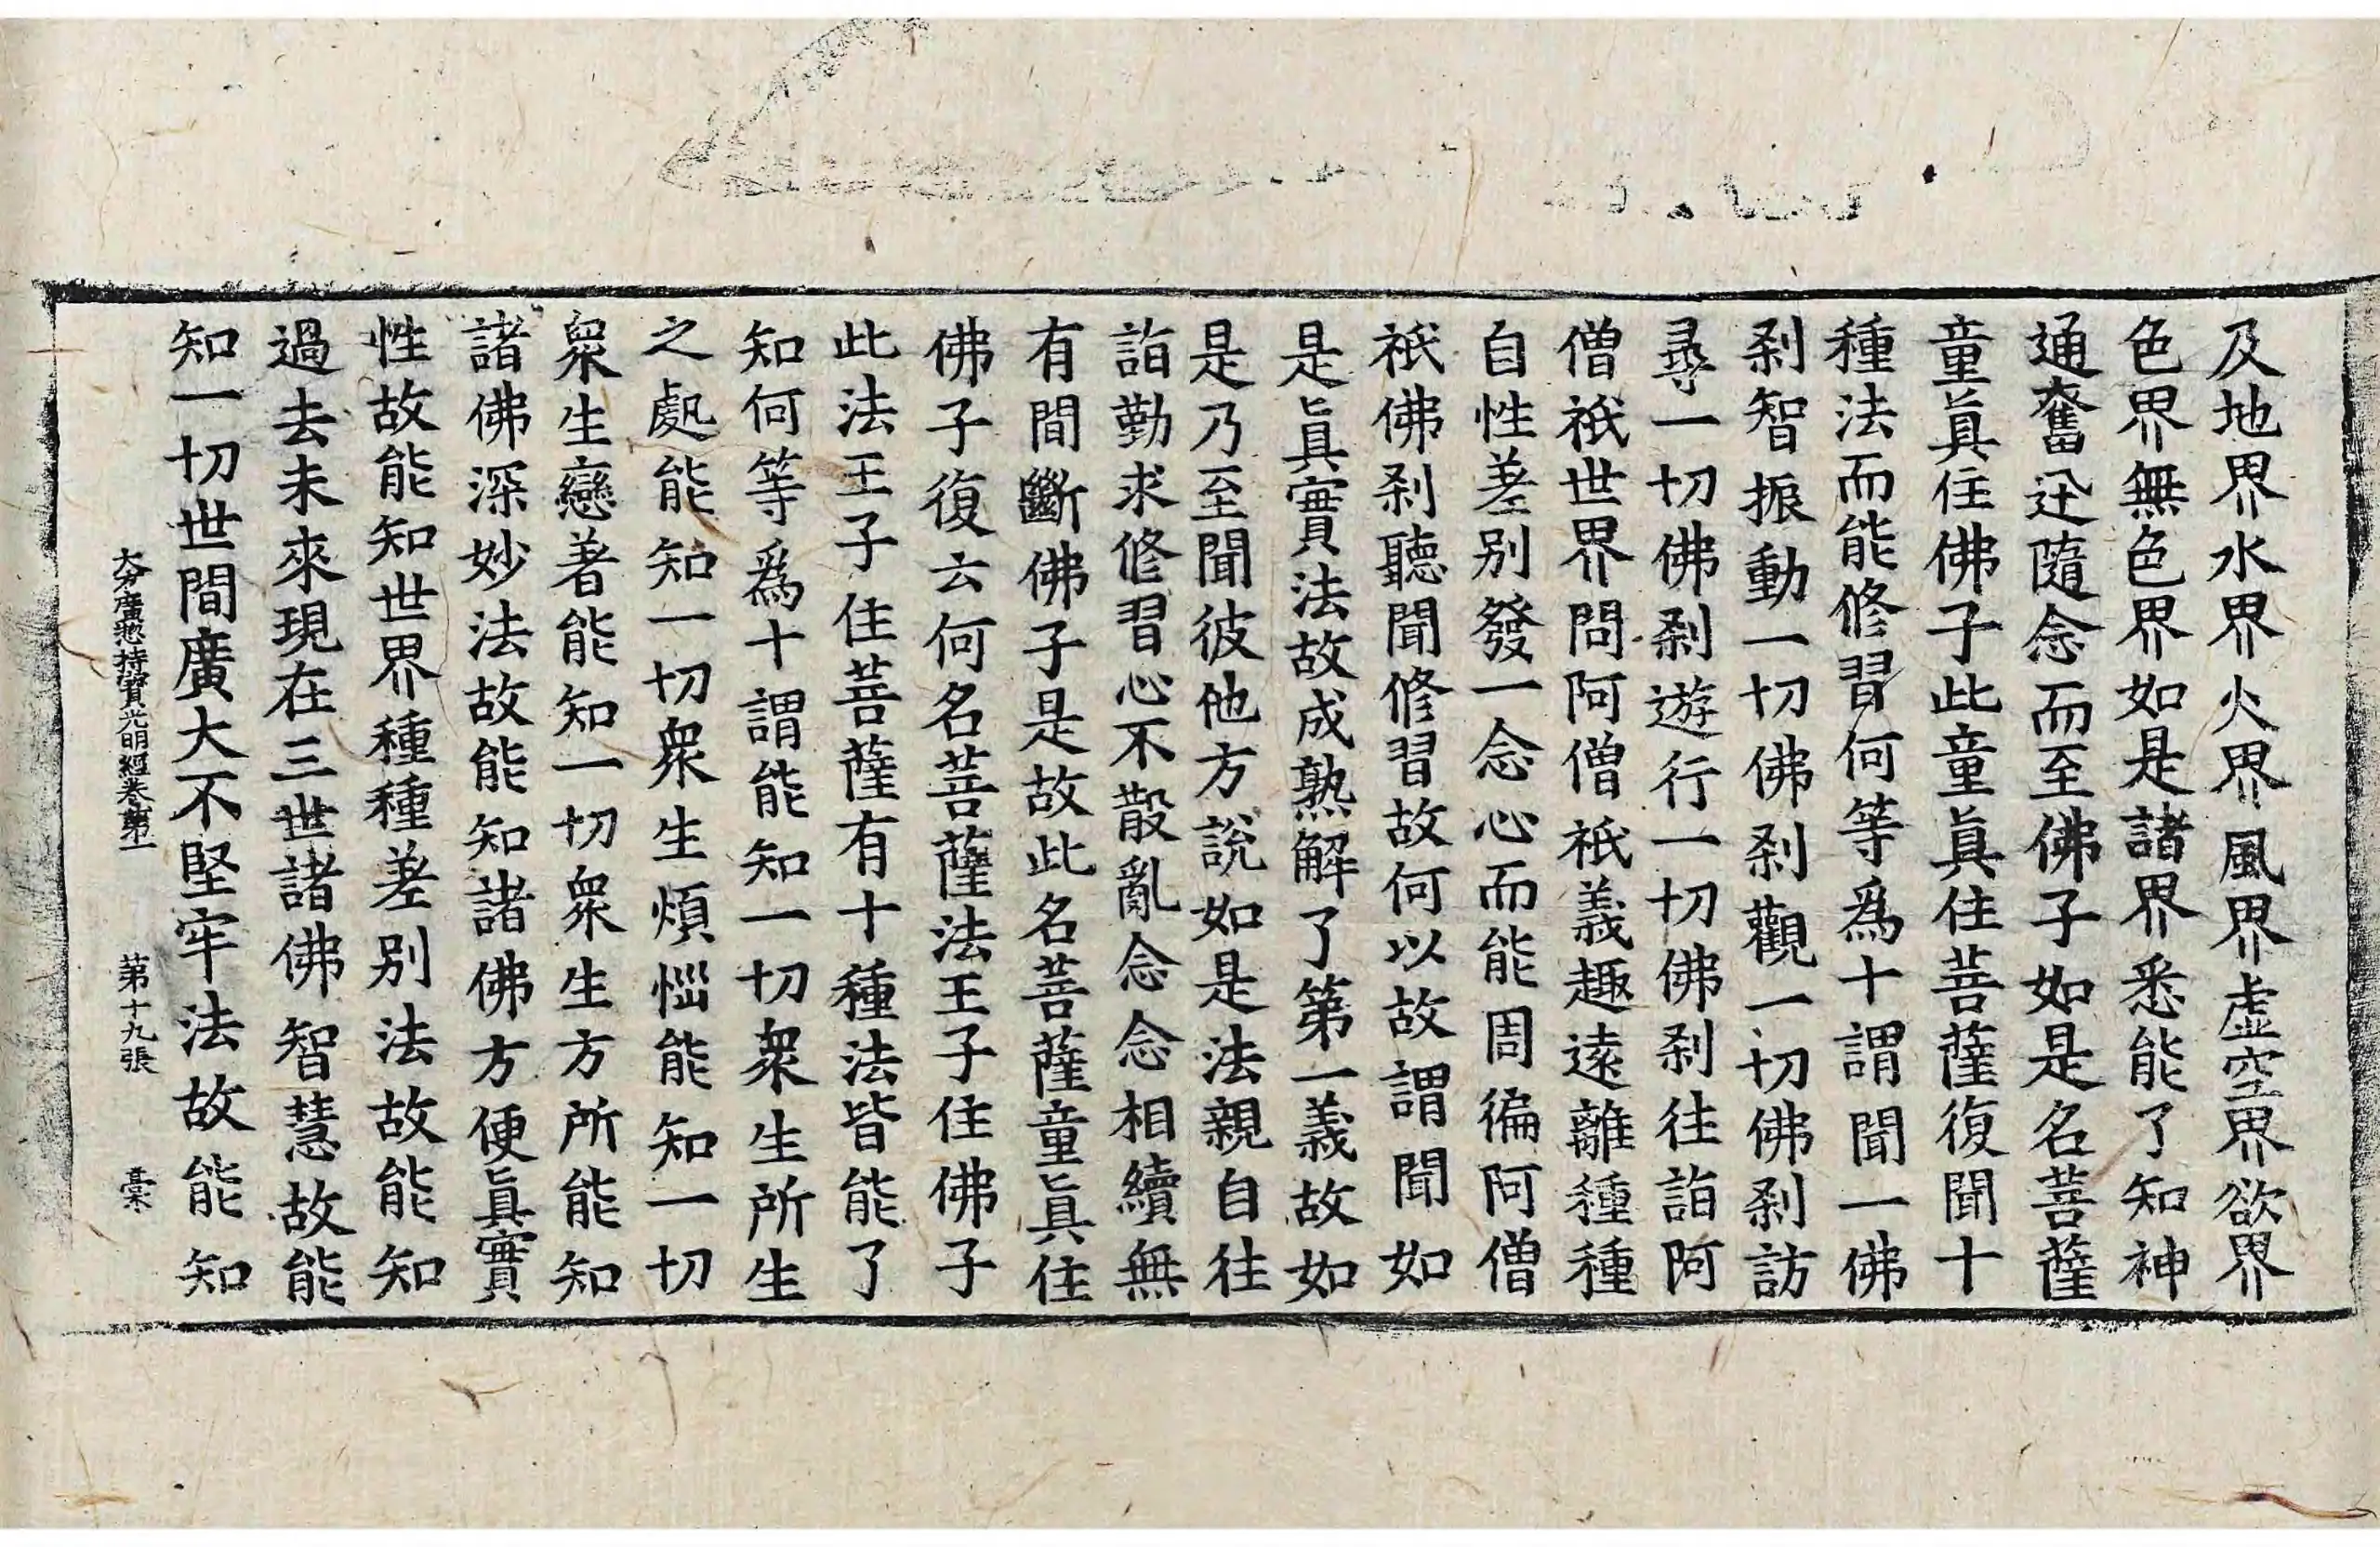 及地界水界火界風界虛空界欲界
色界無色界如是諸界悉能了知神
通奮迅隨念而至佛子如是名菩薩
童眞住佛子此童眞住菩薩復聞十
種法而能修習何等爲十謂聞一佛
刹智振動一切佛刹觀一切佛刹訪
尋一切佛刹遊行一切佛刹往詣阿
僧祇世界問阿僧祇義趣遠離種種
自性差别發一念心而能周徧阿僧
祇佛刹聽聞修習故何以故謂聞如
是眞實法故成熟解了第一義故如
是乃至聞彼他方說如是法親自往
詣勤求修習心不散亂念念相續無
有間斷佛子是故此名菩薩童眞住
佛子復云何名菩薩法王子住佛子
此法王子住菩薩有十種法皆能了
知何等爲十謂能知一切衆生所生
之處能知一切衆生煩惱能知一切
衆生戀著能知一切衆生方所能知
諸佛深妙法故能知諸佛方便眞實
性故能知世界種種差别法故能知
過去未來現在三世諸佛智慧故能
知一切世間廣大不堅牢法故能知
大方廣揔持寶光明經卷第一 第十九張 槀